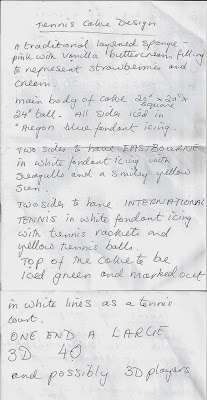 Tennis Cake Design
A traditional layered sponge -
pink with vanilla buttercream filling
to represent strawberries and
cream.
main body of cake 20" x 20" x
square
24" tall. All sides iced in
"Aegon blue fondant icing.
TWO sides to have EASTBOURNE
in white fondant icing with
seagulls and a smiley yellow
sun.
TWO sides to have INTERNATIONAL
TENNIS in white fondant icing
with tennis rackets and
yellow tennis balls.
TOP of the cake to be
iced green and marked out
in white lines as a tennis
court.
ONE END A LARGE
3D 40
and possibly 3D players